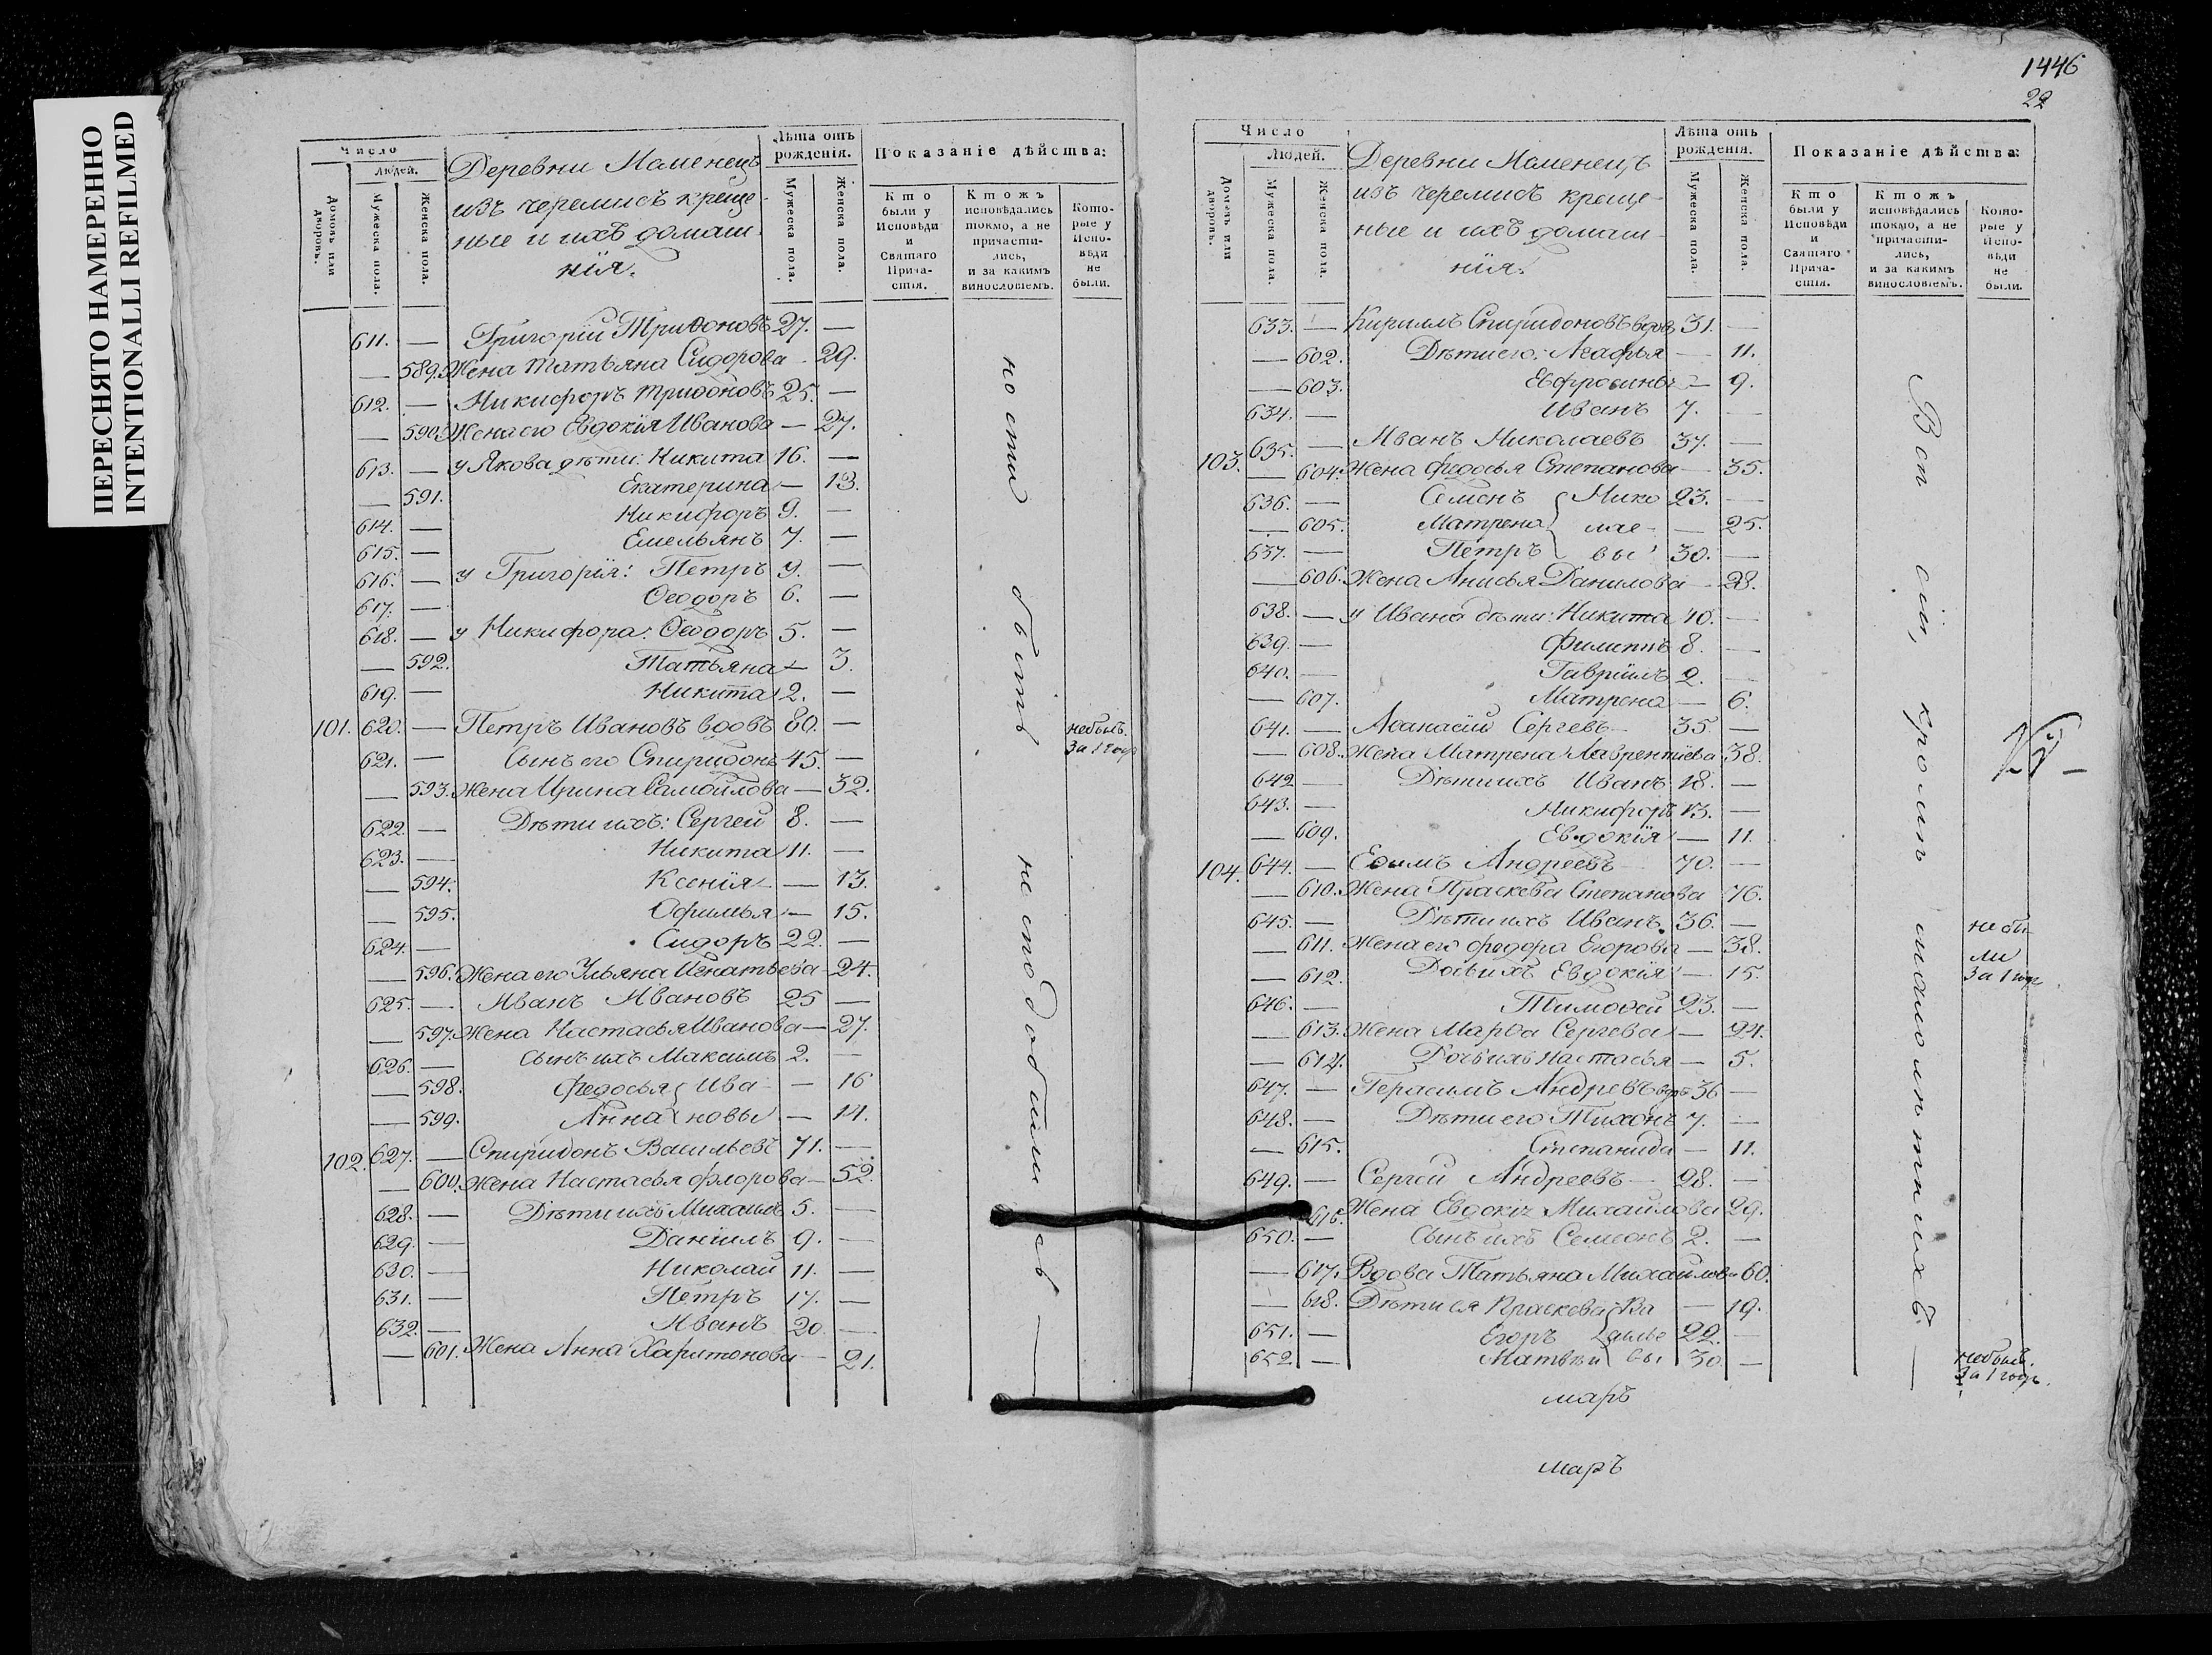 ПЕРЕСНЯТО НАМЕРЕННО
INTENTIONALLI REFILMED
Число
Людей.
Домовъ или дворовъ.
Мужеска пола.
Женска пола.
Деревни Маменецъ
изъ черемисъ креще-
ные и ихъ домаш-
нія.
Лѣта отъ рожденія.
Мужеска пола.
Женска пола.
Показаніе дѣйства:
Кто были у Исповѣди и Святаго Прича-стія.
Ктожъ исповѣдались токмо, а не причасти-лись, и за какимъ винословіемъ.
Кото-рые у Испо-вѣди не были.
611. — Григорій Трифоновъ 27. —
— 589. Жена Татьяна Сидорова — 29.
612. — Никифоръ Трифоновъ 25. —
— 590. Жена его Евдокія Иванова — 27.
613. — у Якова дѣти: Никита 16. —
— 591. Екатерина — 13.
614. — Никифоръ 9. —
615. — Емельянъ 7. —
616. — у Григорія: Петръ 9. —
617. — Ѳеодоръ 6. —
618. — у Никифора: Ѳеодоръ 5. —
— 592. Татьяна — 3.
619. — Никита 2. —
101. 620. — Петръ Ивановъ вдовъ 80. — небылъ За 1 годъ
621. — Сынъ его Спиридонъ 45. —
— 593. Жена Ирина Самойлова — 32.
622. — Дѣти ихъ: Сергей 8. —
623. — Никита 11. —
— 594. Ксенія — 13.
— 595. Офимья — 15.
624. — Сидоръ 22. —
— 596. Жена его Ульяна Игнатьева 24.
625. — Иванъ Ивановъ 25 —
— 597. Жена Настасья Иванова — 27.
626. — сынъ ихъ Максимъ 2. —
— 598. Федосья Ива- — 16
— 599. Анна новы — 14.
102. 627. — Спиридонъ Васильевъ 71. —
— 600. Жена Настасья Флорова — 52.
628. — Дѣти ихъ Михаилъ 5. —
629. — Даніилъ 9. —
630. — Николай 11. —
631. — Петръ 17. —
632. — Иванъ 20 —
— 601. Жена Анна Харитонова — 21.
ности быть не сподобились —
1446
22
Число
Людей.
Домовъ или дворовъ.
Мужеска пола.
Женска пола.
Деревни Маменецъ
изъ черемисъ креще-
ные и ихъ домаш-
нія.
Лѣта отъ рожденія.
Мужеска пола.
Женска пола.
Показаніе дѣйства:
Кто были у Исповѣди и Святаго Прича-стія.
Ктожъ исповѣдались токмо, а не причасти-лись, и за какимъ винословіемъ.
Кото-рые у Испо-вѣди не были.
633. — Кириллъ Спиридоновъ вдовъ 31. —
— 602. Дѣти его: Агафья — 11.
— 603. Евфросинья — 9.
634. — Иванъ 7. —
103. 635. — Иванъ Николаевъ 37. —
— 604. Жена Федосья Степанова — 35.
636. — Семенъ Нико 23. —
— 605. Матрена лае- — 25.
637. — Петръ вы 30. —
— 606. Жена Анисья Данилова — 28.
638. — у Ивана дѣти: Никита 10. —
639. — Филиппъ 8. —
640. — Гавріилъ 2. —
— 607. Матрена — 6.
641. — Аѳанасій Сергеевъ — 35. —
— 608. Жена Матрена Лаврентіева 38.
642 — Дѣти ихъ Иванъ 18. —
643. — Никифоръ 13. —
— 609. Евдокія — 11.
104. 644. — Ефимъ Андреевъ — 70. —
— 610. Жена Праскева Степанова 76.
645. — Дѣти ихъ Иванъ 36. — небы-ли За 1 годъ
— 611. Жена его Федора Егорова — 38.
— 612. Дочь ихъ Евдокія — 15.
646. — Тимофей 23. —
— 613. Жена Марфа Сергева — 24.
— 614. Дочь ихъ Настасья — 5.
647. — Герасимъ Андреевъ вдовъ 36 —
648. — Дѣти его Тихонъ 7. —
— 615. Степанида — 11.
649. — Сергей Андреевъ — 28. —
616. Жена Евдокія Михайлова 29.
650. — Сынъ ихъ Семенъ 2. —
— 617. Вдова Татьяна Михайлова 60.
— 618. Дѣти ея Праскева Ва — 19.
651. — Егоръ силье 22. —
652. — Матвей вы 30. — небылъ За 1 годъ.
Вси сіи, кромѣ малолѣтнихъ —
маръ
маръ